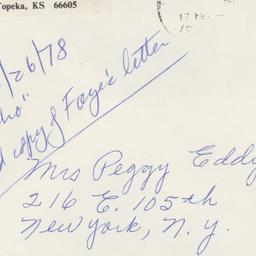 Topeka, KS 66605
17 FEB
/26/78
copy of Faye's letter
Mrs Peggy Eddy
216 E. 105th
New York, N. Y.